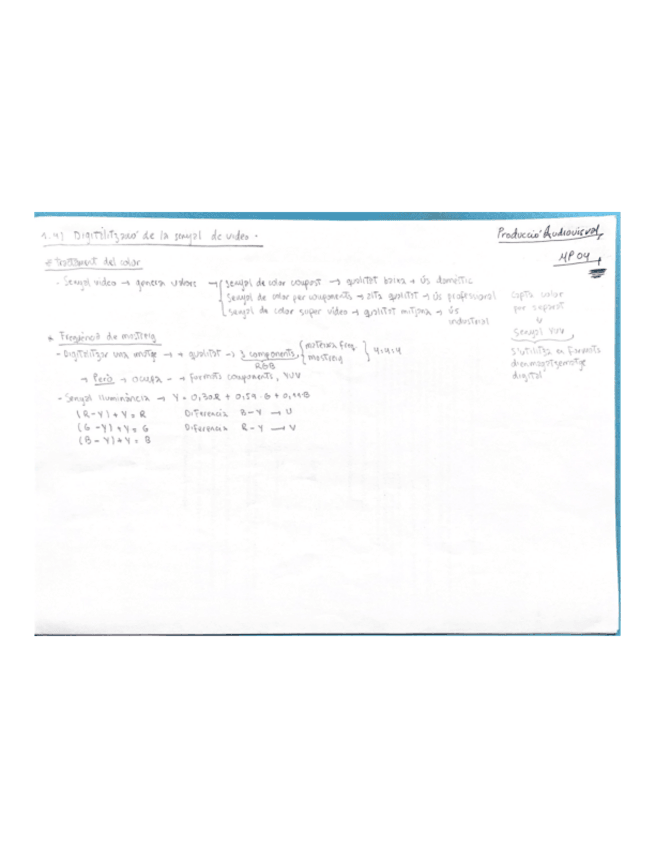 1.4) Digitalització de la senyal de video.
Producció Audiovisual
MP04
* Tractament del color
- Senyal video → genera valors → senyal de color compost → qualitat baixa → ús domèstic
senyal de color per components → alta qualitat → ús professional
senyal de color super video → qualitat mitjana → ús industrial
Capta color
per separat
↓
Senyal YUV
S'utilitza en formats
d'enmagatzematge
digital
* Freqüència de mostreig
- Digitalitzar una imatge → + qualitat → 3 components RGB { mateixa freq. mostreig } 4:4:4
→ Però → ocupa → formats components, YUV
- Senyal lluminància → Y = 0,30R + 0,59·G + 0,11B
(R-Y)+Y = R Diferencia B-Y → U
(G-Y)+Y = G Diferencia R-Y → V
(B-Y)+Y = B